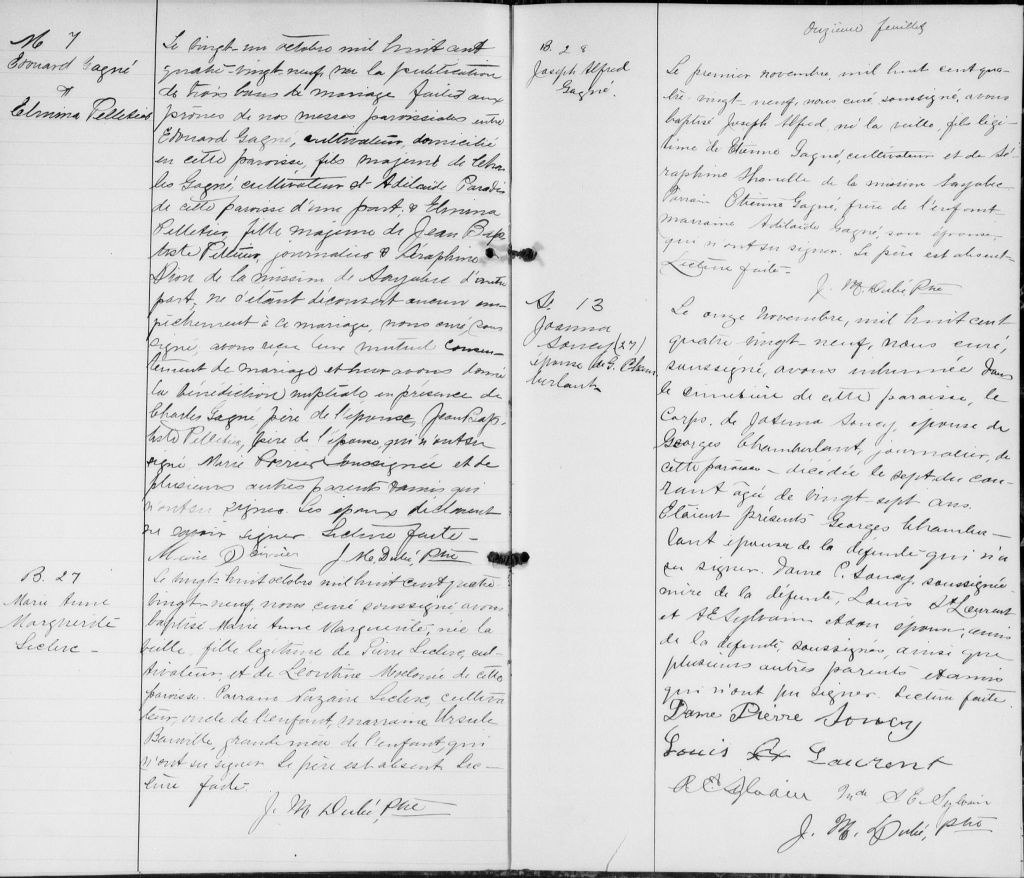 M 7
Edouard Gagné
&
Elmina Pelletier
Le vingt-un octobre mil huit cent
quatre-vingt-neuf, vu la publication
de trois bans de mariage faite aux
prônes de nos messes paroissiales entre
Edouard Gagné, cultivateur, domicilié
en cette paroisse, fils majeur de Char
les Gagné, cultivateur et Adélaïde Paradis
de cette paroisse d'une part; & Elmina
Pelletier, fille majeure de Jean Bap
tiste Pelletier, journalier & Séraphine
Dion de la mission de Sayabec d'autre
part, ne s'étant découvert aucun em
pêchement à ce mariage, nous curé sous
signé, avons reçu leur mutuel consen
tement de mariage et leur avons donné
la bénédiction nuptiale en présence de
Charles Gagné père de l'épouse, Jean Bap
tiste Pelletier, père de l'épouse, qui n'ont su
signé, Marie Poirier soussignée et de
plusieurs autres parents & amis qui
n'ont su signer. Les époux déclarent
ne savoir signer. Lecture faite -
Marie Poirier J. M. Dubé, Ptre
B. 27
Marie Anne
Marguerite
Leclerc -
Le vingt-huit octobre mil huit cent quatre
vingt-neuf, nous curé soussigné avons
baptisé Marie Anne Marguerite, née la
veille, fille légitime de Pierre Leclerc, cul
tivateur, et de Léontine de cette
paroisse. Parrain Nazaire Leclerc, cultiva
teur, oncle de l'enfant, marraine Ursule
grande mère de l'enfant, qui
n'ont su signer. Le père est absent. Lec
ture faite.
J. M. Dubé, Ptre
Onzième feuillet
B. 28
Joseph Alfred
Gagné.
Le premier novembre, mil huit cent qua
tre-vingt-neuf, nous curé, soussigné, avons
baptisé Joseph Alfred, né la veille, fils légi
time de Etienne Gagné, cultivateur et de Sé
raphine de la mission Sayabec
Parrain Etienne Gagné, frère de l'enfant
marraine Adélaïde Gagné, son épouse,
qui n'ont su signer. Le père est absent.
Lecture faite.
J. M. Dubé Ptre
S. 13
Joanna
Soucy (27)
épouse de G. Cham
berlant
Le onze novembre, mil huit cent
quatre vingt-neuf, nous curé,
soussigné, avons inhumée dans
le cimetière de cette paroisse, le
corps, de Joanna Soucy, épouse de
Georges Chamberlant, journalier, de
cette paroisse - décédée le sept du cou
rant âgée de vingt sept ans.
Etaient présents Georges Chamber
lant époux de la défunte qui n'a
su signer. Dame P. Soucy soussignée
mère de la défunte, Louis St Laurent
et A E Sylvain et son épouse, amis
de la défunte, soussignés, ainsi que
plusieurs autres parents et amis
qui n'ont pu signer. Lecture faite.
Dame Pierre Soucy
Louis St Laurent
A E Sylvain Mde A E. Sylvain
J. M. Dubé, Ptre